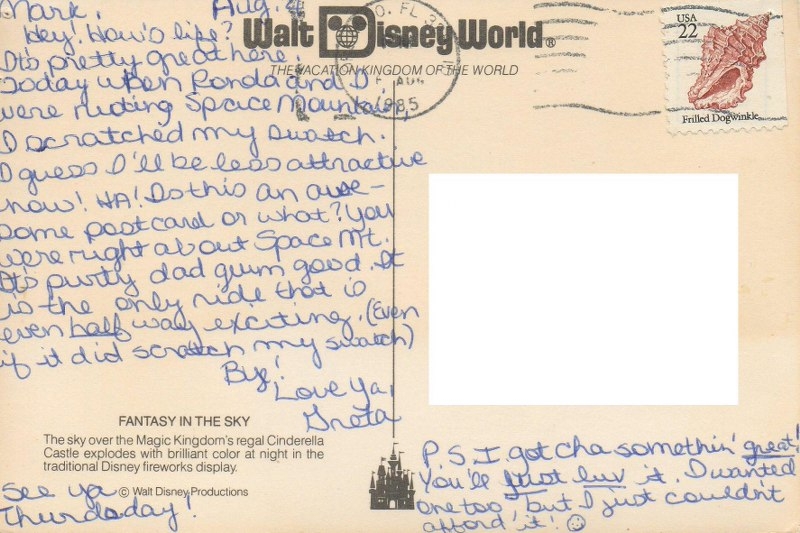 Mark, Aug. 2
Hey! How's life?
It's pretty great here
Today when Ronda and I,
were riding Space Mountain,
I scratched my swatch.
I guess I'll be less attractive
now! HA! Is this an awe-
some postcard or what? You
were right about Space Mt.
It's purty dad gum good. It
is the only ride that is
even half way exciting. (Even
if it did scratch my swatch)
Bye!
Love Ya,
Greta
Walt Disney World®
THE VACATION KINGDOM OF THE WORLD
FL 32
AUG
1985
USA
22
Frilled Dogwinkle
FANTASY IN THE SKY
The sky over the Magic Kingdom's regal Cinderella
Castle explodes with brilliant color at night in the
traditional Disney fireworks display.
© Walt Disney Productions
See ya
Thursday!
P S I gotcha somethin' great!
You'll just luv it. I wanted
one too, but I just couldn't
afford it!